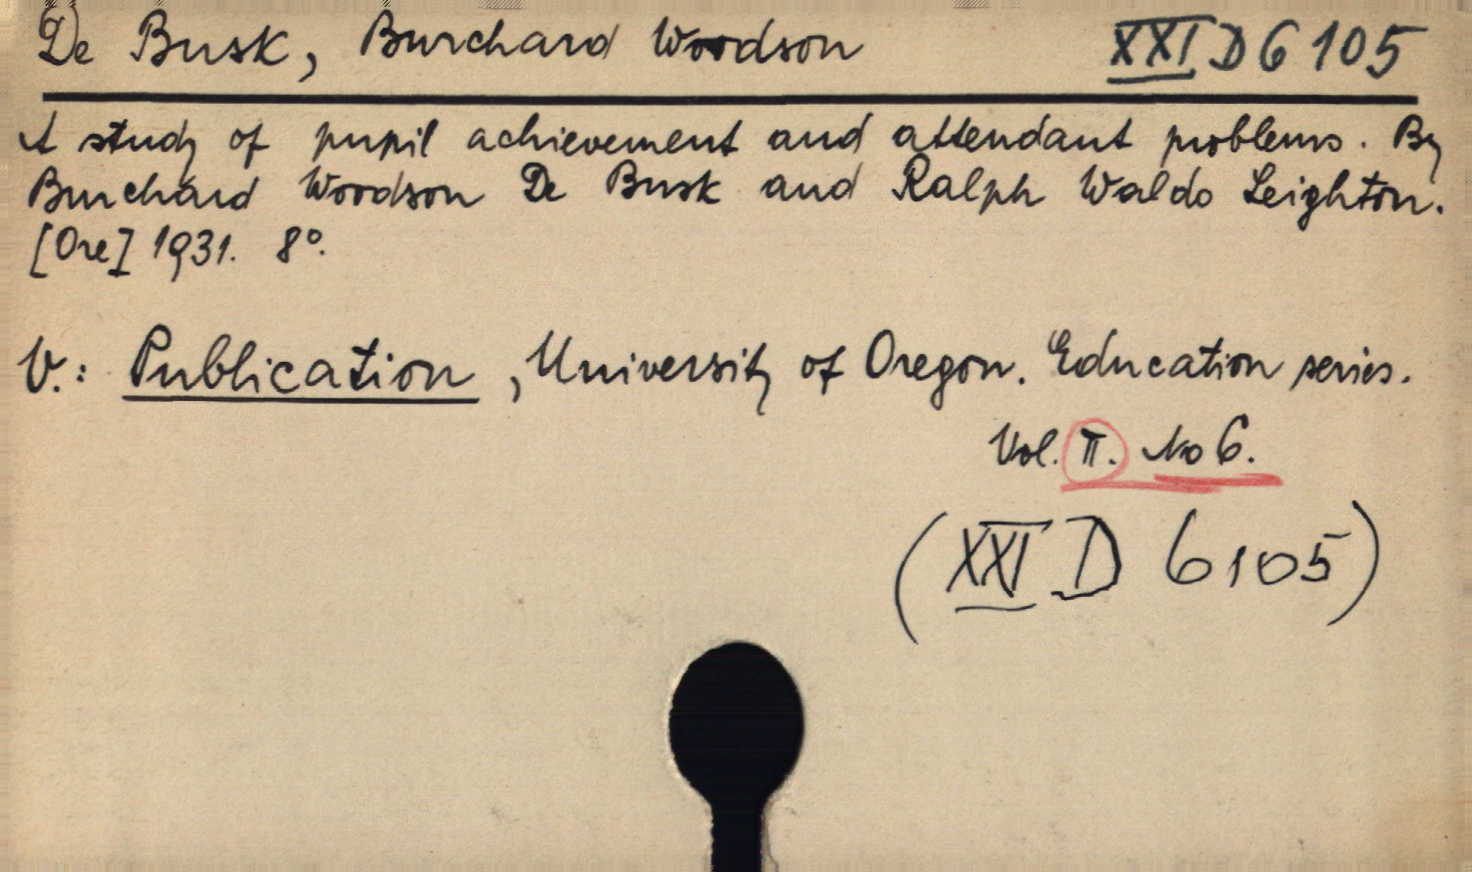 De Busk, Burchard Woodson XXI D 6105
A study of pupil achievement and attendant problems. By
Burchard Woodson De Busk and Ralph Waldo Leighton.
[Ore] 1931. 8º.
V.: Publication, University of Oregon. Education series.
Vol. II. No 6.
(XXI D 6105)